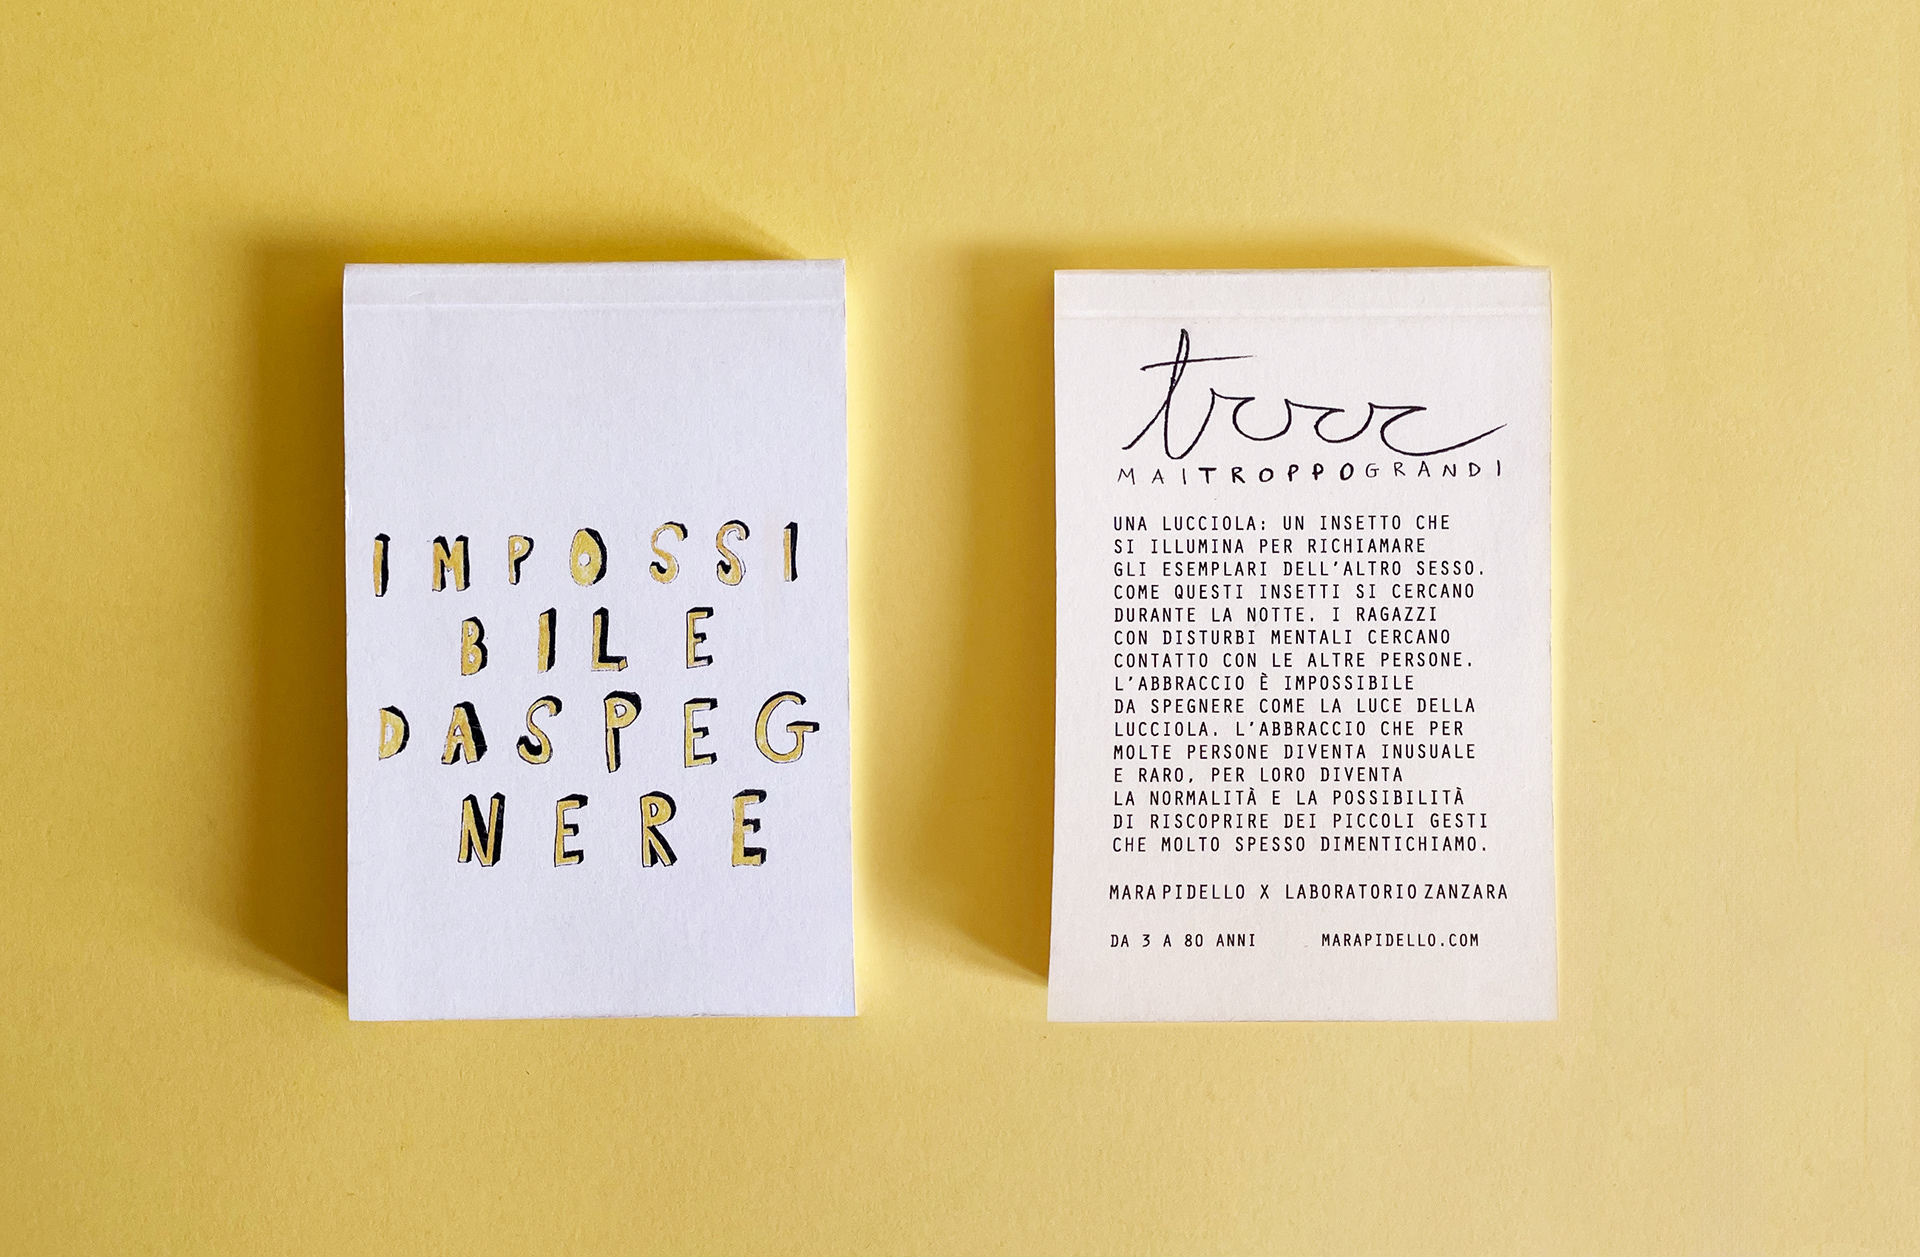 IMPOSSI
BILE
DASPEG
NERE
trrr
MAITROPPOGRANDI
UNA LUCCIOLA: UN INSETTO CHE
SI ILLUMINA PER RICHIAMARE
GLI ESEMPLARI DELL'ALTRO SESSO.
COME QUESTI INSETTI SI CERCANO
DURANTE LA NOTTE. I RAGAZZI
CON DISTURBI MENTALI CERCANO
CONTATTO CON LE ALTRE PERSONE.
L'ABBRACCIO È IMPOSSIBILE
DA SPEGNERE COME LA LUCE DELLA
LUCCIOLA. L'ABBRACCIO CHE PER
MOLTE PERSONE DIVENTA INUSUALE
E RARO, PER LORO DIVENTA
LA NORMALITÀ E LA POSSIBILITÀ
DI RISCOPRIRE DEI PICCOLI GESTI
CHE MOLTO SPESSO DIMENTICHIAMO.
MARA PIDELLO X LABORATORIO ZANZARA
DA 3 A 80 ANNI MARAPIDELLO.COM